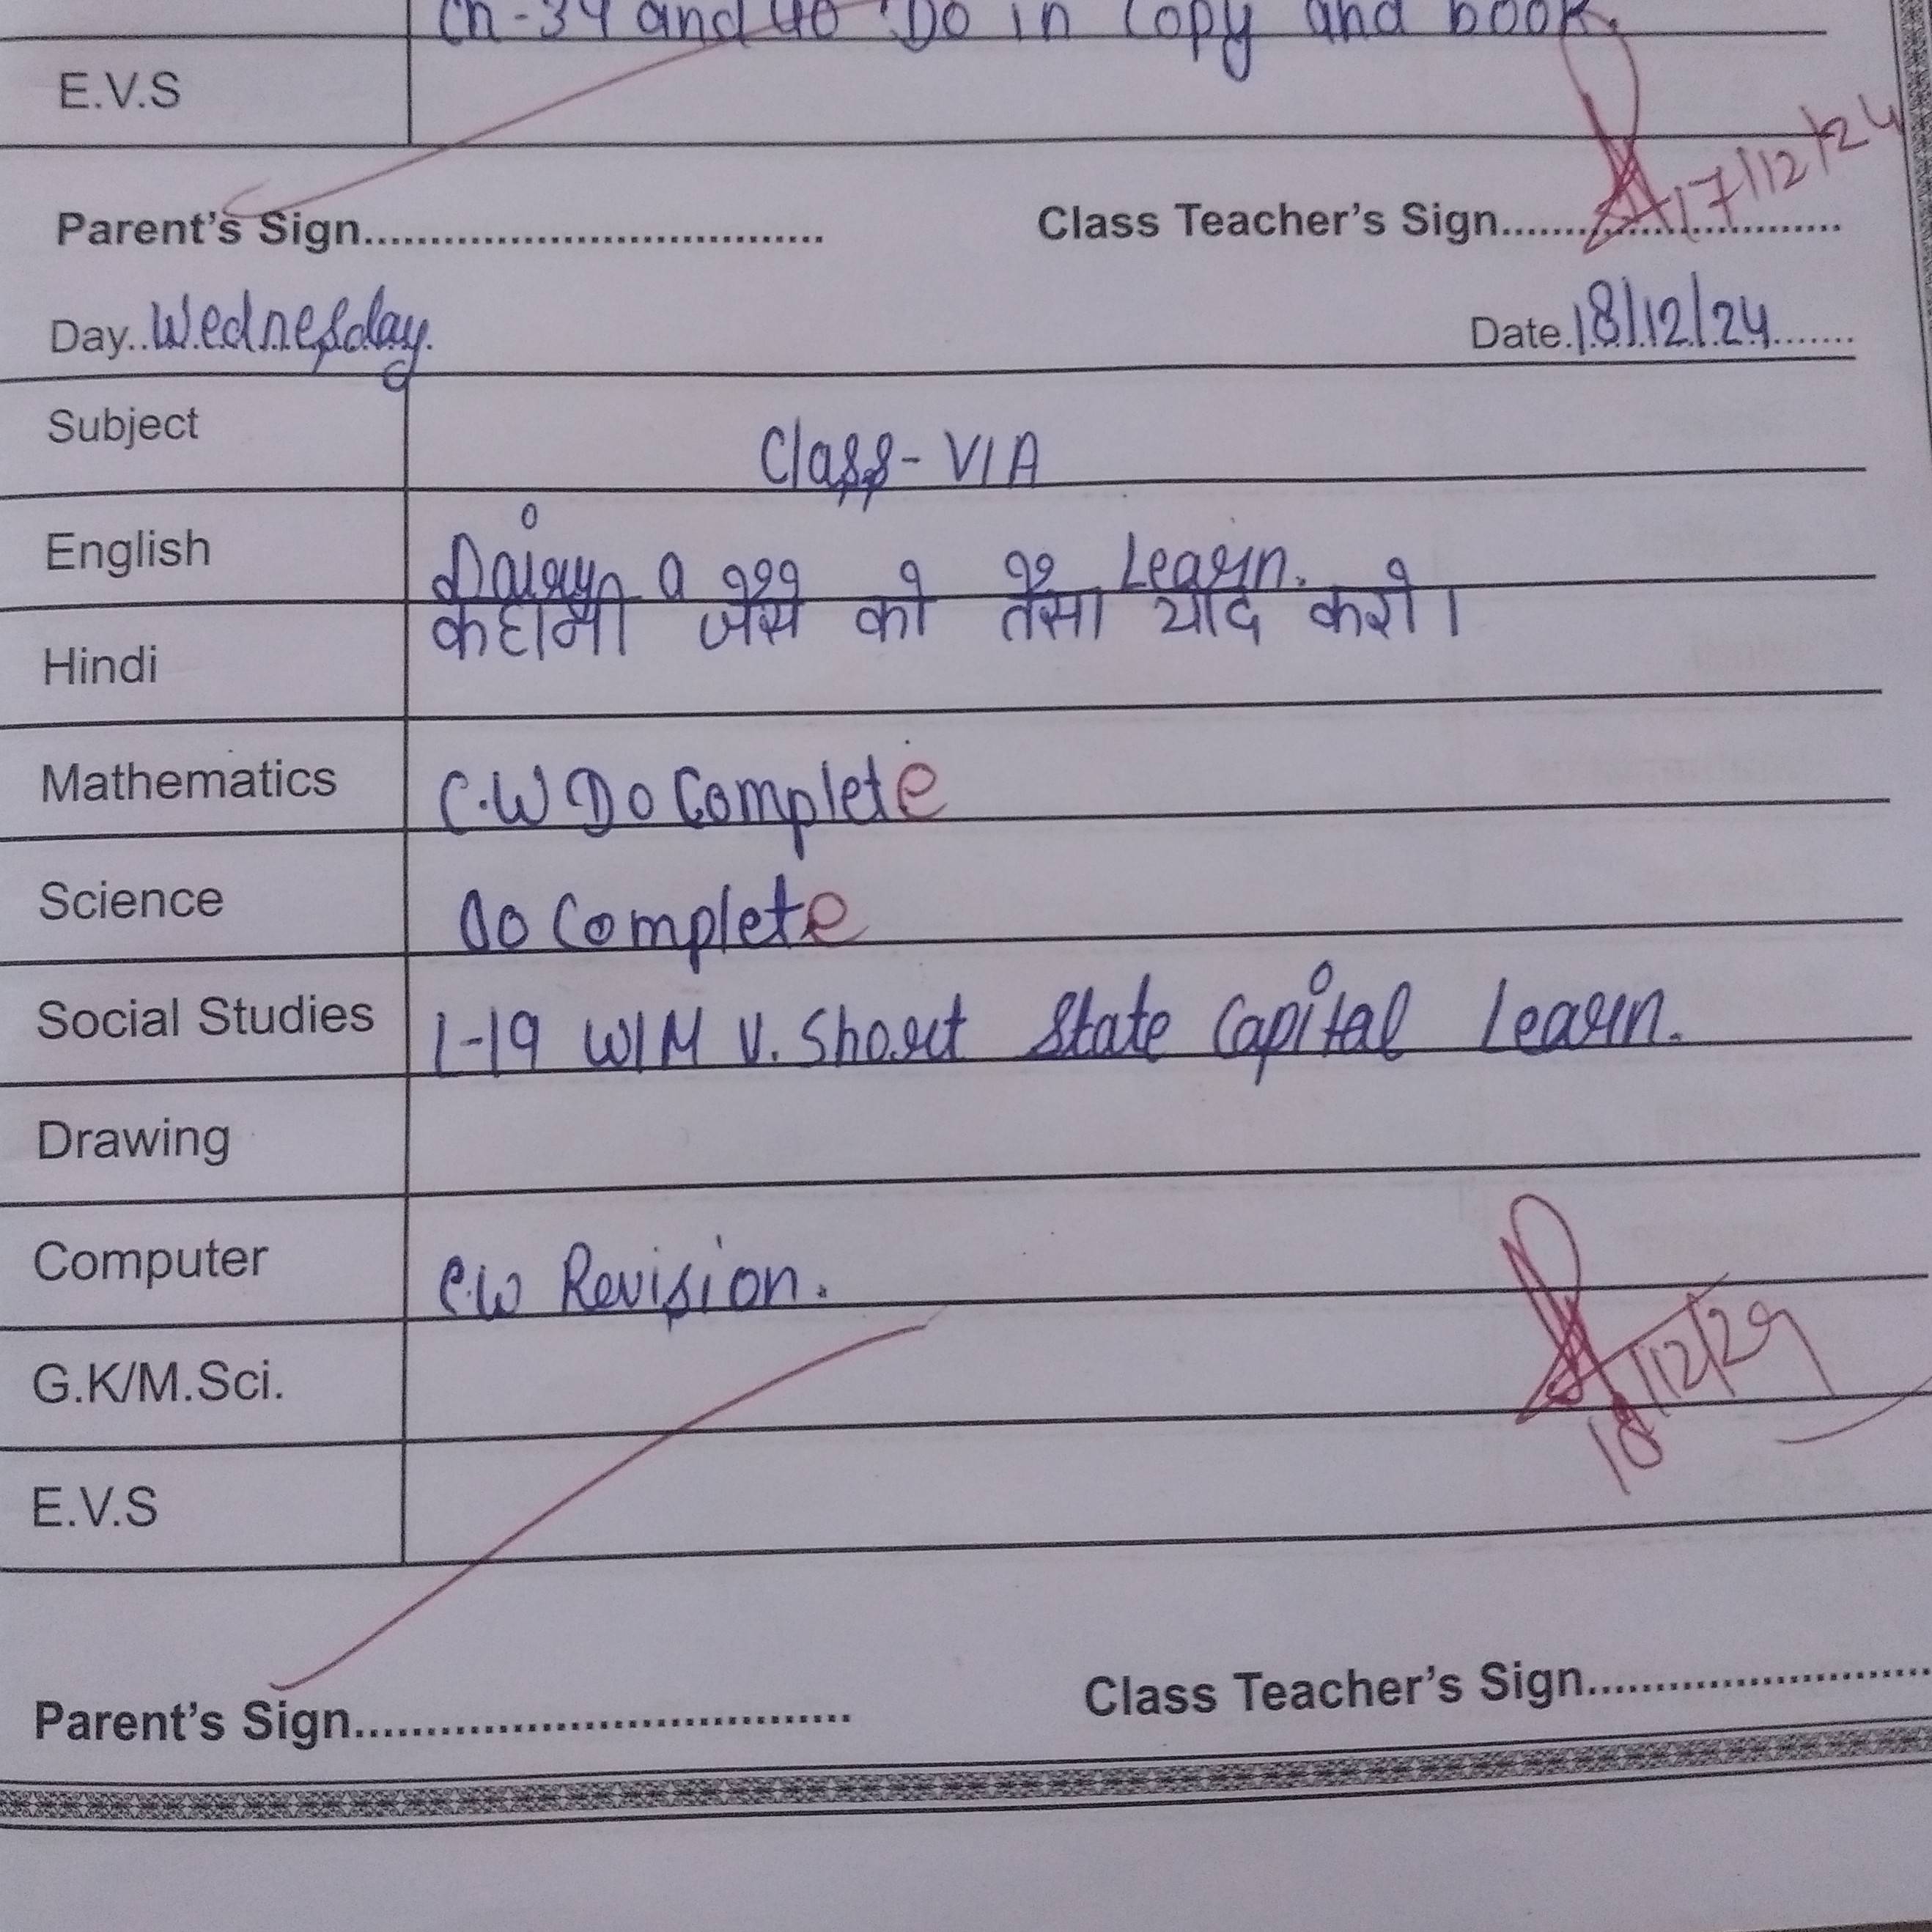 Ch-39 and 40 Do in Copy and book.
E.V.S
Parent's Sign.................................. Class Teacher's Sign.........................
17/12/24
Day..Wednesday. Date.18/12/24.......
Subject Class-VI A
English Learn.
Hindi कहानी जैसे को तैसा याद करो।
Mathematics C.W Do Complete
Science Do Complete
Social Studies 1-19 W/M V. Short State Capital Learn.
Drawing
Computer C.W Revision.
G.K/M.Sci.
18/12/24
E.V.S
Parent's Sign................................... Class Teacher's Sign.........................